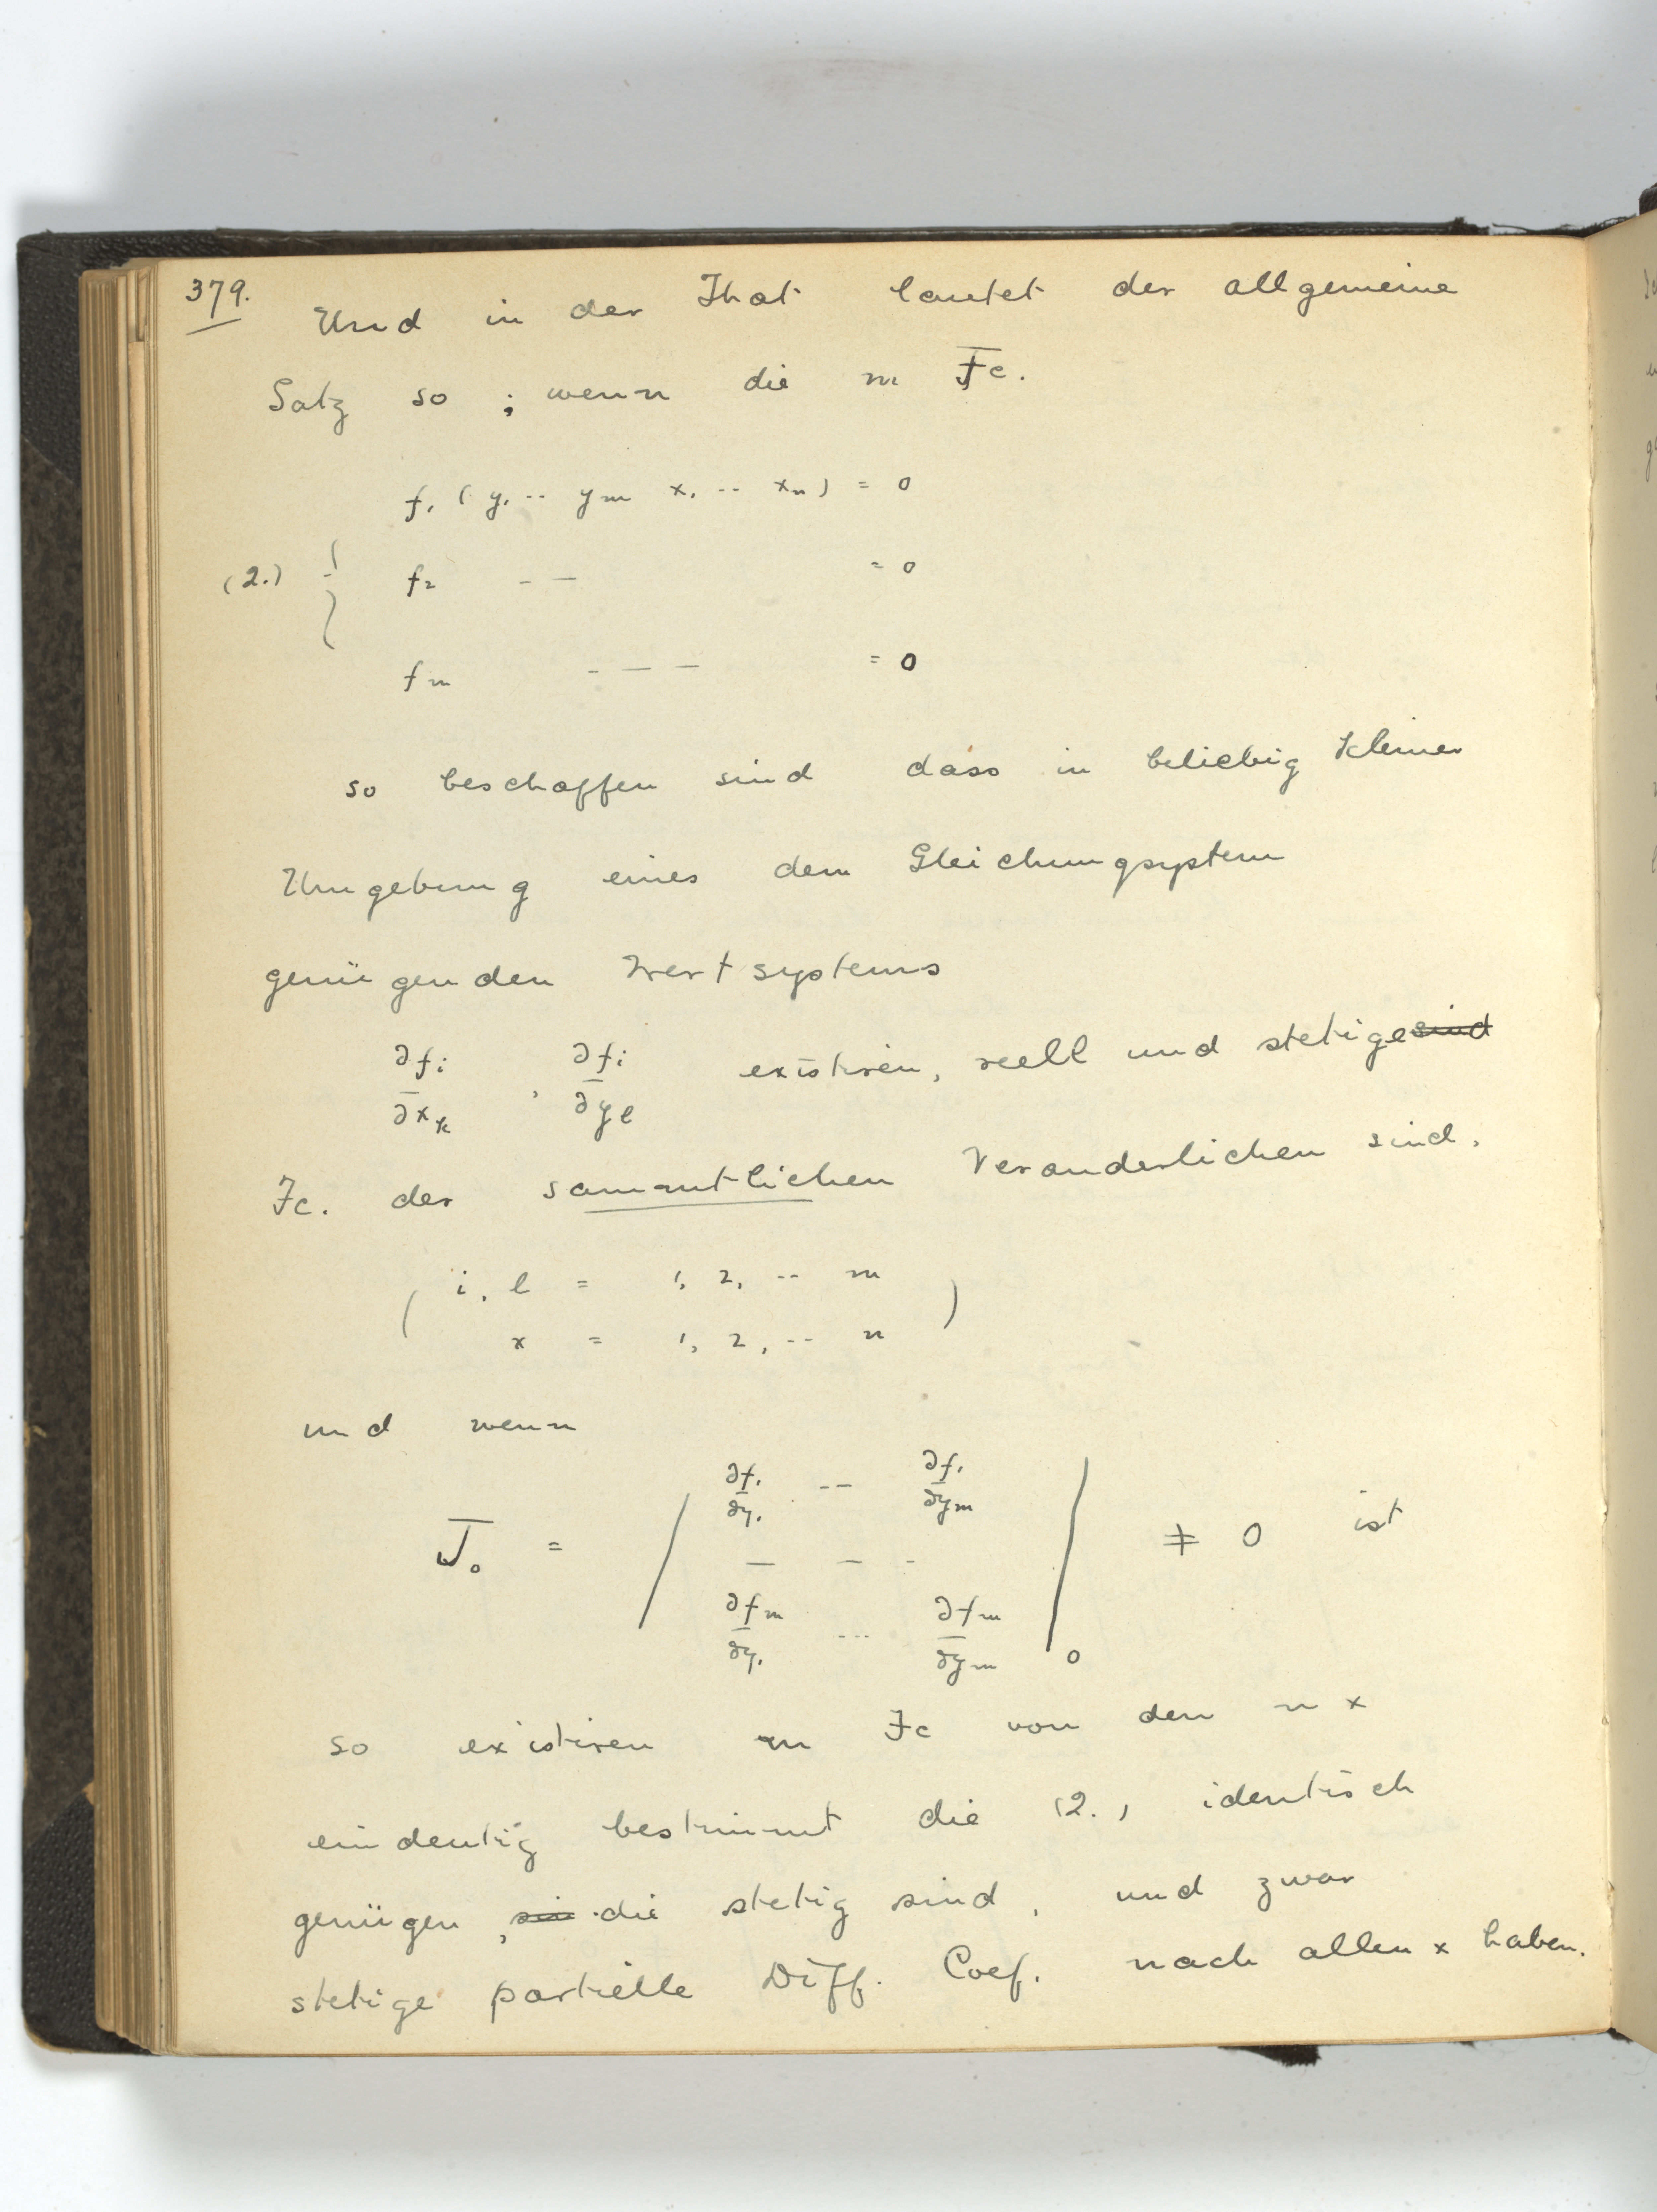 379. Und in der That lautet der allgemeine
Satz so ; wenn die m Fc.
f₁ (y₁ -- ym x₁ -- xn) = 0
(2.) { f₂ - — = 0
fm - — — = 0
so beschaffen sind dass in beliebig kleiner
Umgebung eines dem Gleichungsystem
genügenden Wertsystems
∂fi/∂xk , ∂fi/∂yl existiren, reell und stetige sind
Fc. der sammtlichen Veranderlichen sind,
( i, l = 1, 2, -- m
x = 1, 2, -- n )
und wenn
J₀ = | ∂f₁/∂y₁ -- ∂f₁/∂ym
— — -
∂fm/∂y₁ --- ∂fm/∂ym |₀ ≠ 0 ist
so existiren m Fc von den n x
eindeutig bestimmt die (2.) identisch
genügen, sin die stetig sind, und zwar
stetige partielle Diff. Coef. nach allen x haben.